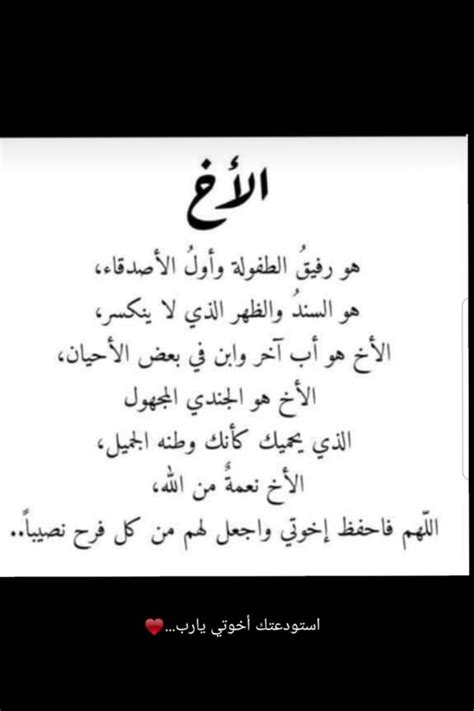 الأخ
هو رفيقُ الطفولة وأولُ الأصدقاء،
هو السندُ والظهر الذي لا ينكسر،
الأخ هو أب آخر وابن في بعض الأحيان،
الأخ هو الجندي المجهول
الذي يحميك كأنك وطنه الجميل،
الأخ نعمةٌ من الله،
اللّهم فاحفظ إخوتي واجعل لهم من كل فرح نصيباً..
استودعتك أخوتي يارب...♥